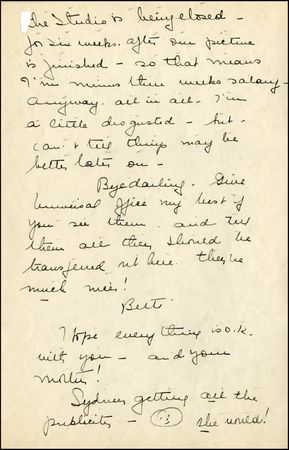 The Studio is being closed -
for six weeks. after our picture
is finished - so that means
I'm minus three weeks salary -
Anyway. all in all. I'm
a little disgusted - but -
can't tell things may be
better later on -
Bye darling. Give
Universal office my best if
you see them. and tell
them all they should be
transfered out here. they're
much nicer!
Bette
I hope everything is o.k.
with you - and your
mother!
Sydney getting all the
publicity - (?) she would!